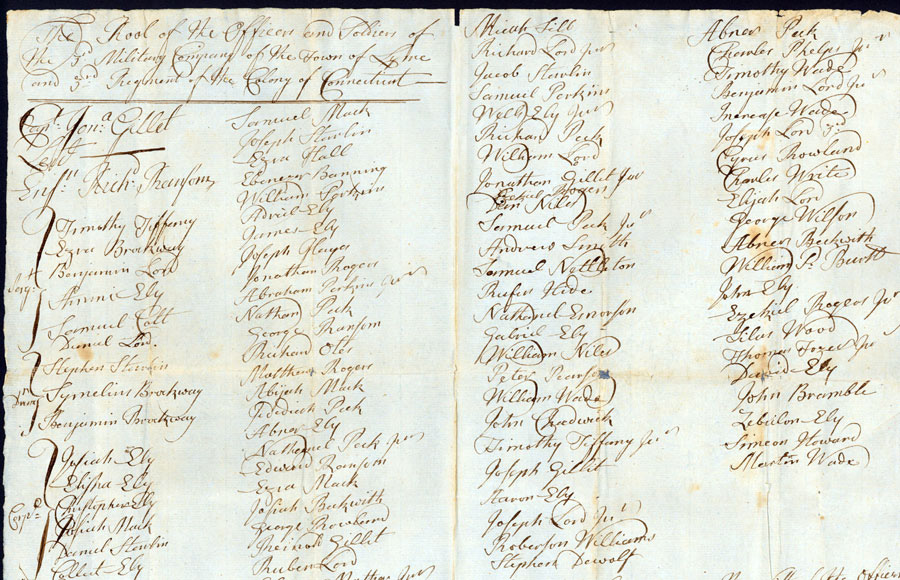 The Rool of the Officers and Soldiers of
the 3rd Military Company of the Town of Lyme
and 3rd Regiment of the Colony of Connecticut
Capt. Jona Gillet
Leut
Ensn Richd Ransom
Sergts
Timothy Tiffany
Ezra Brockway
Benjamin Lord
Ammi Ely
Samuel Colt
Daniel Lord
Stephen Starlin
Symelius Brockway
Benjamin Brockway
Corpl
Josiah Ely
Elisha Ely
Christopher Ely
Josiah Mack
Daniel Starlin
Cullect Ely
Samuel Mack
Joseph Starlin
Ezra Hall
Ebenezer Banning
William Perkins
Adriel Ely
James Ely
Joseph
Jonathan Rogers
Abraham Perkins Jur
Nathan Peck
George Ransom
Richard Otes
Matthew Rogers
Abijah Mack
Jedidiah Peck
Abner Ely
Nathaniel Peck Jur
Edward Ransom
Ezra Mack
Josiah Beckwith
George Rowland
Gillet
Ruben Lord
Mather Jur
Micah Sill
Richard Lord Jur
Jacob Starlin
Samuel Perkins
Wells Ely Jur
Richard Peck
William Lord
Jonathan Gillet Jur
Ezekiel Rogers
Niles
Samuel Peck Jur
Andrew Smith
Samuel Nettleton
Rufus Hide
Nathaniel Emorson
Gabriel Ely
William Niles
Peter Pearson
William Wade
John Chadwick
Timothy Tiffany Jur
Joseph Gillit
Aaron Ely
Joseph Lord Jur
Roberson Williams
Stephen Dewolf
Abner Peck
Charles Phelps Jur
Timothy Wade
Benjamin Lord Jur
Increase Wade
Joseph Lord 3rd
Cyrus Rowland
Charles Write
Elijah Lord
George Wilson
Abner Beckwith
William P. Burtt
John Ely
Ezekiel Rogers Jur
Silas Wood
Thomas Jur
David Ely
John Bramble
Zebulon Ely
Simeon Howard
Martin Wade